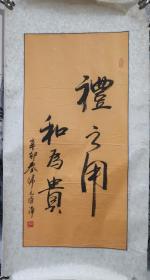 禮之用
和為貴
辛卯春